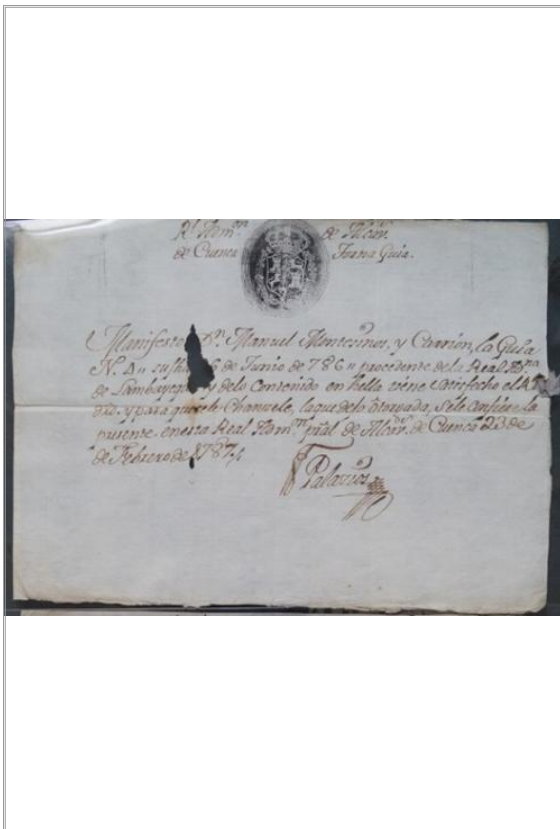 Rl. Admon. de Alcav.
de Cuenca Torna Guia.
Manifestó Dn. Manuel Montesinos, y Carrión, la Guia
N. 4 su fha 6 de Junio de 786 procedente de la Real Adma
de Lambayeq y delo Contenido en hello viene satisfecho el
y para que sele Chanzele, la que delo Otorgada, Sele confiere la
presente en esta Real Admon pral de Alcav. de Cuenca 23 de
de Febrero de 1787
Palacios